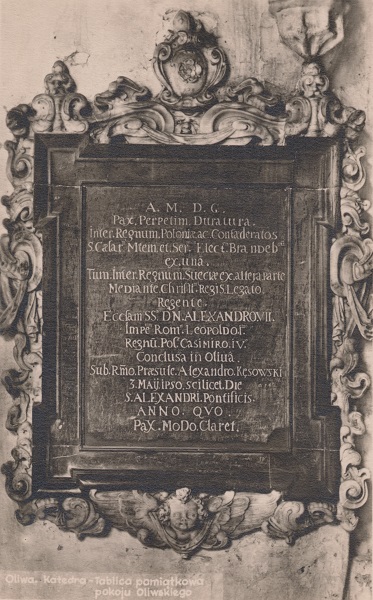 A. M. D. G.
Pax. Perpetim. Duratura.
Inter. Regnum. Poloniæ ac Confæderatos
S. Cæsar. Mtem. et. Ser. Elec. Brandeb
ex. una.
Tum. Inter. Regnum. Sueciæ ex. altera parte
Mediante. Christ. Regis. Legato.
Regente.
Eccľam SS. D N. ALEXANDRO VII.
Impe Rom. Leopoldo I.
Regnũ. Pol. Casimiro. IV.
Conclusa in Olivâ.
Sub. Rmo. Præsule. Alexandro. Kęsowski
3. Maij. Ipso. scilicet. Die
S. ALEXANDRI. Pontificis.
ANNO. QVO.
PaX. MoDo. CLaret.
Oliwa. Katedra - Tablica pamiątkowa
pokoju Oliwskiego